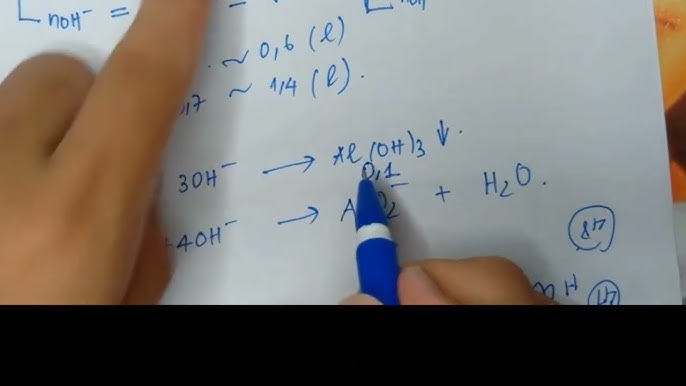 nOH⁻ =
~ 0,6 (l)
,7 ~ 1,4 (l).
3OH⁻ → Al(OH)₃ ↓.
0,1
+ 4OH⁻ → A O₂⁻ + H₂O.
48
47